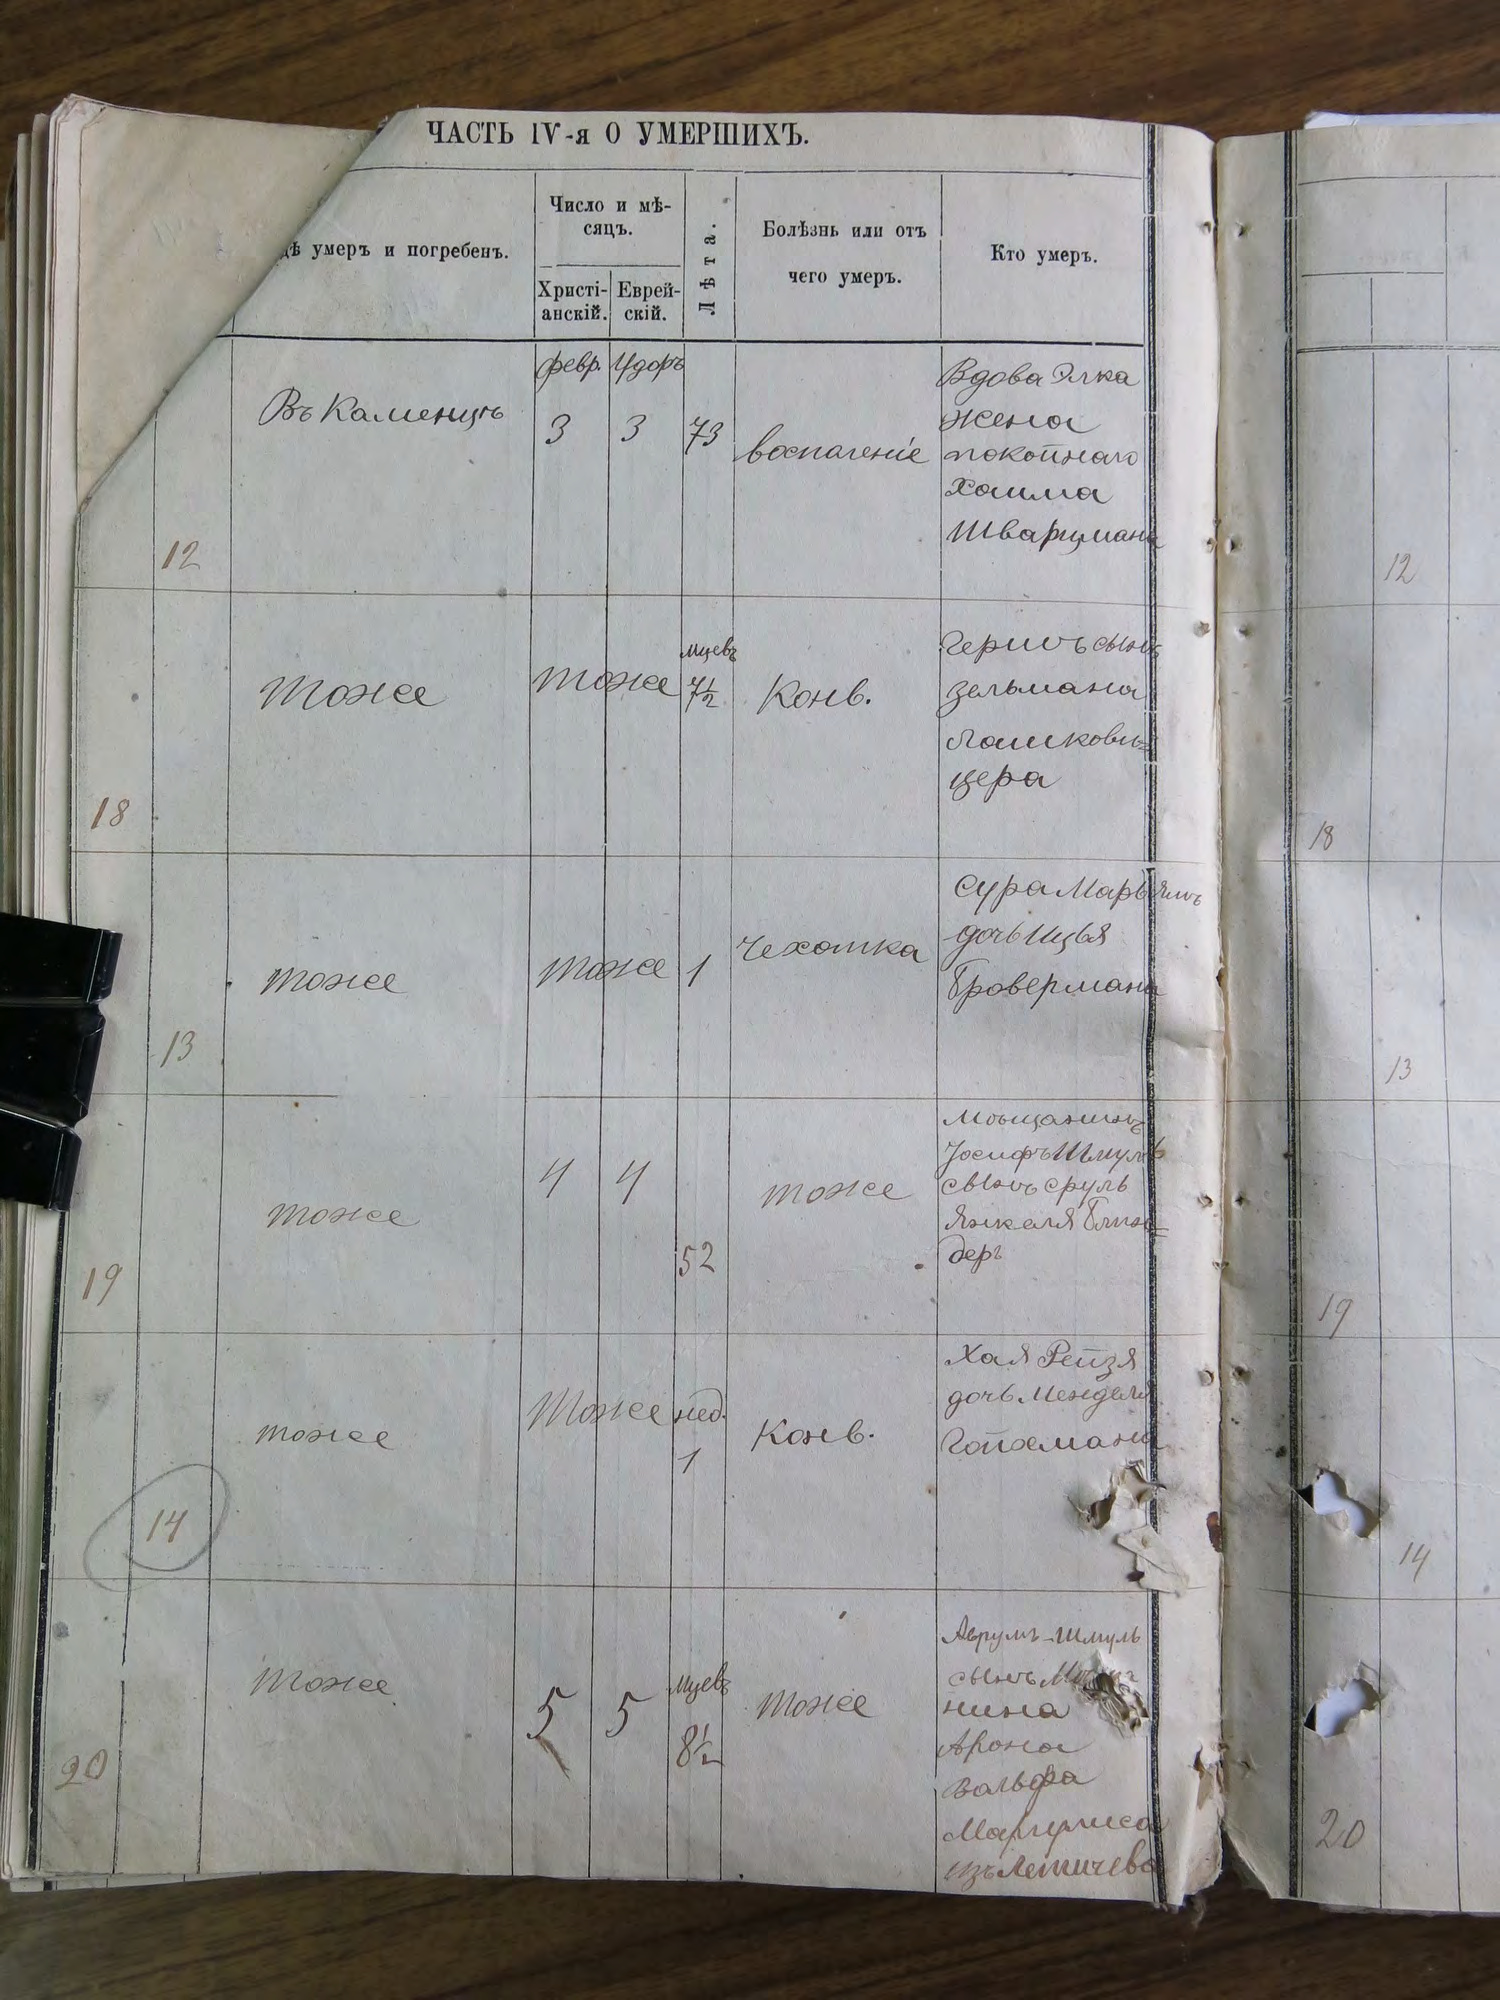 ЧАСТЬ IV-я О УМЕРШИХЪ.
дѣ умеръ и погребенъ.
Число и мѣ-
сяцъ.
Христі-
анскій.
Еврей-
скій.
Лѣта.
Болѣзнь или отъ
чего умеръ.
Кто умеръ.
12
Въ Каменцѣ
февр.
3
Удоръ
3
73
воспаленіе
Вдова Элка
жена
покойнаго
Хаима
Шварцмана
12
18
тоже
тоже
мцевъ
7½
Конв.
Гершъ сынъ
Зельмана
Лашкови-
цера
18
13
тоже
тоже
1
Чехотка
Сура Марьямъ
дочь Ицья
Бровермана
13
19
тоже
4
4
52
тоже
Мѣщанинъ
Іосифъ Шмуль
сынъ Сруль
Янкеля Блин-
деръ
19
14
тоже
тоже
нед.
1
Конв.
Хая Рейзя
дочь Менделя
Гойхмана
14
20
тоже
5
5
мцевъ
8½
тоже
Аврумъ-Шмуль
сынъ
нина
Арона
Вольфа
Маргулиса
изъ Летичева
20